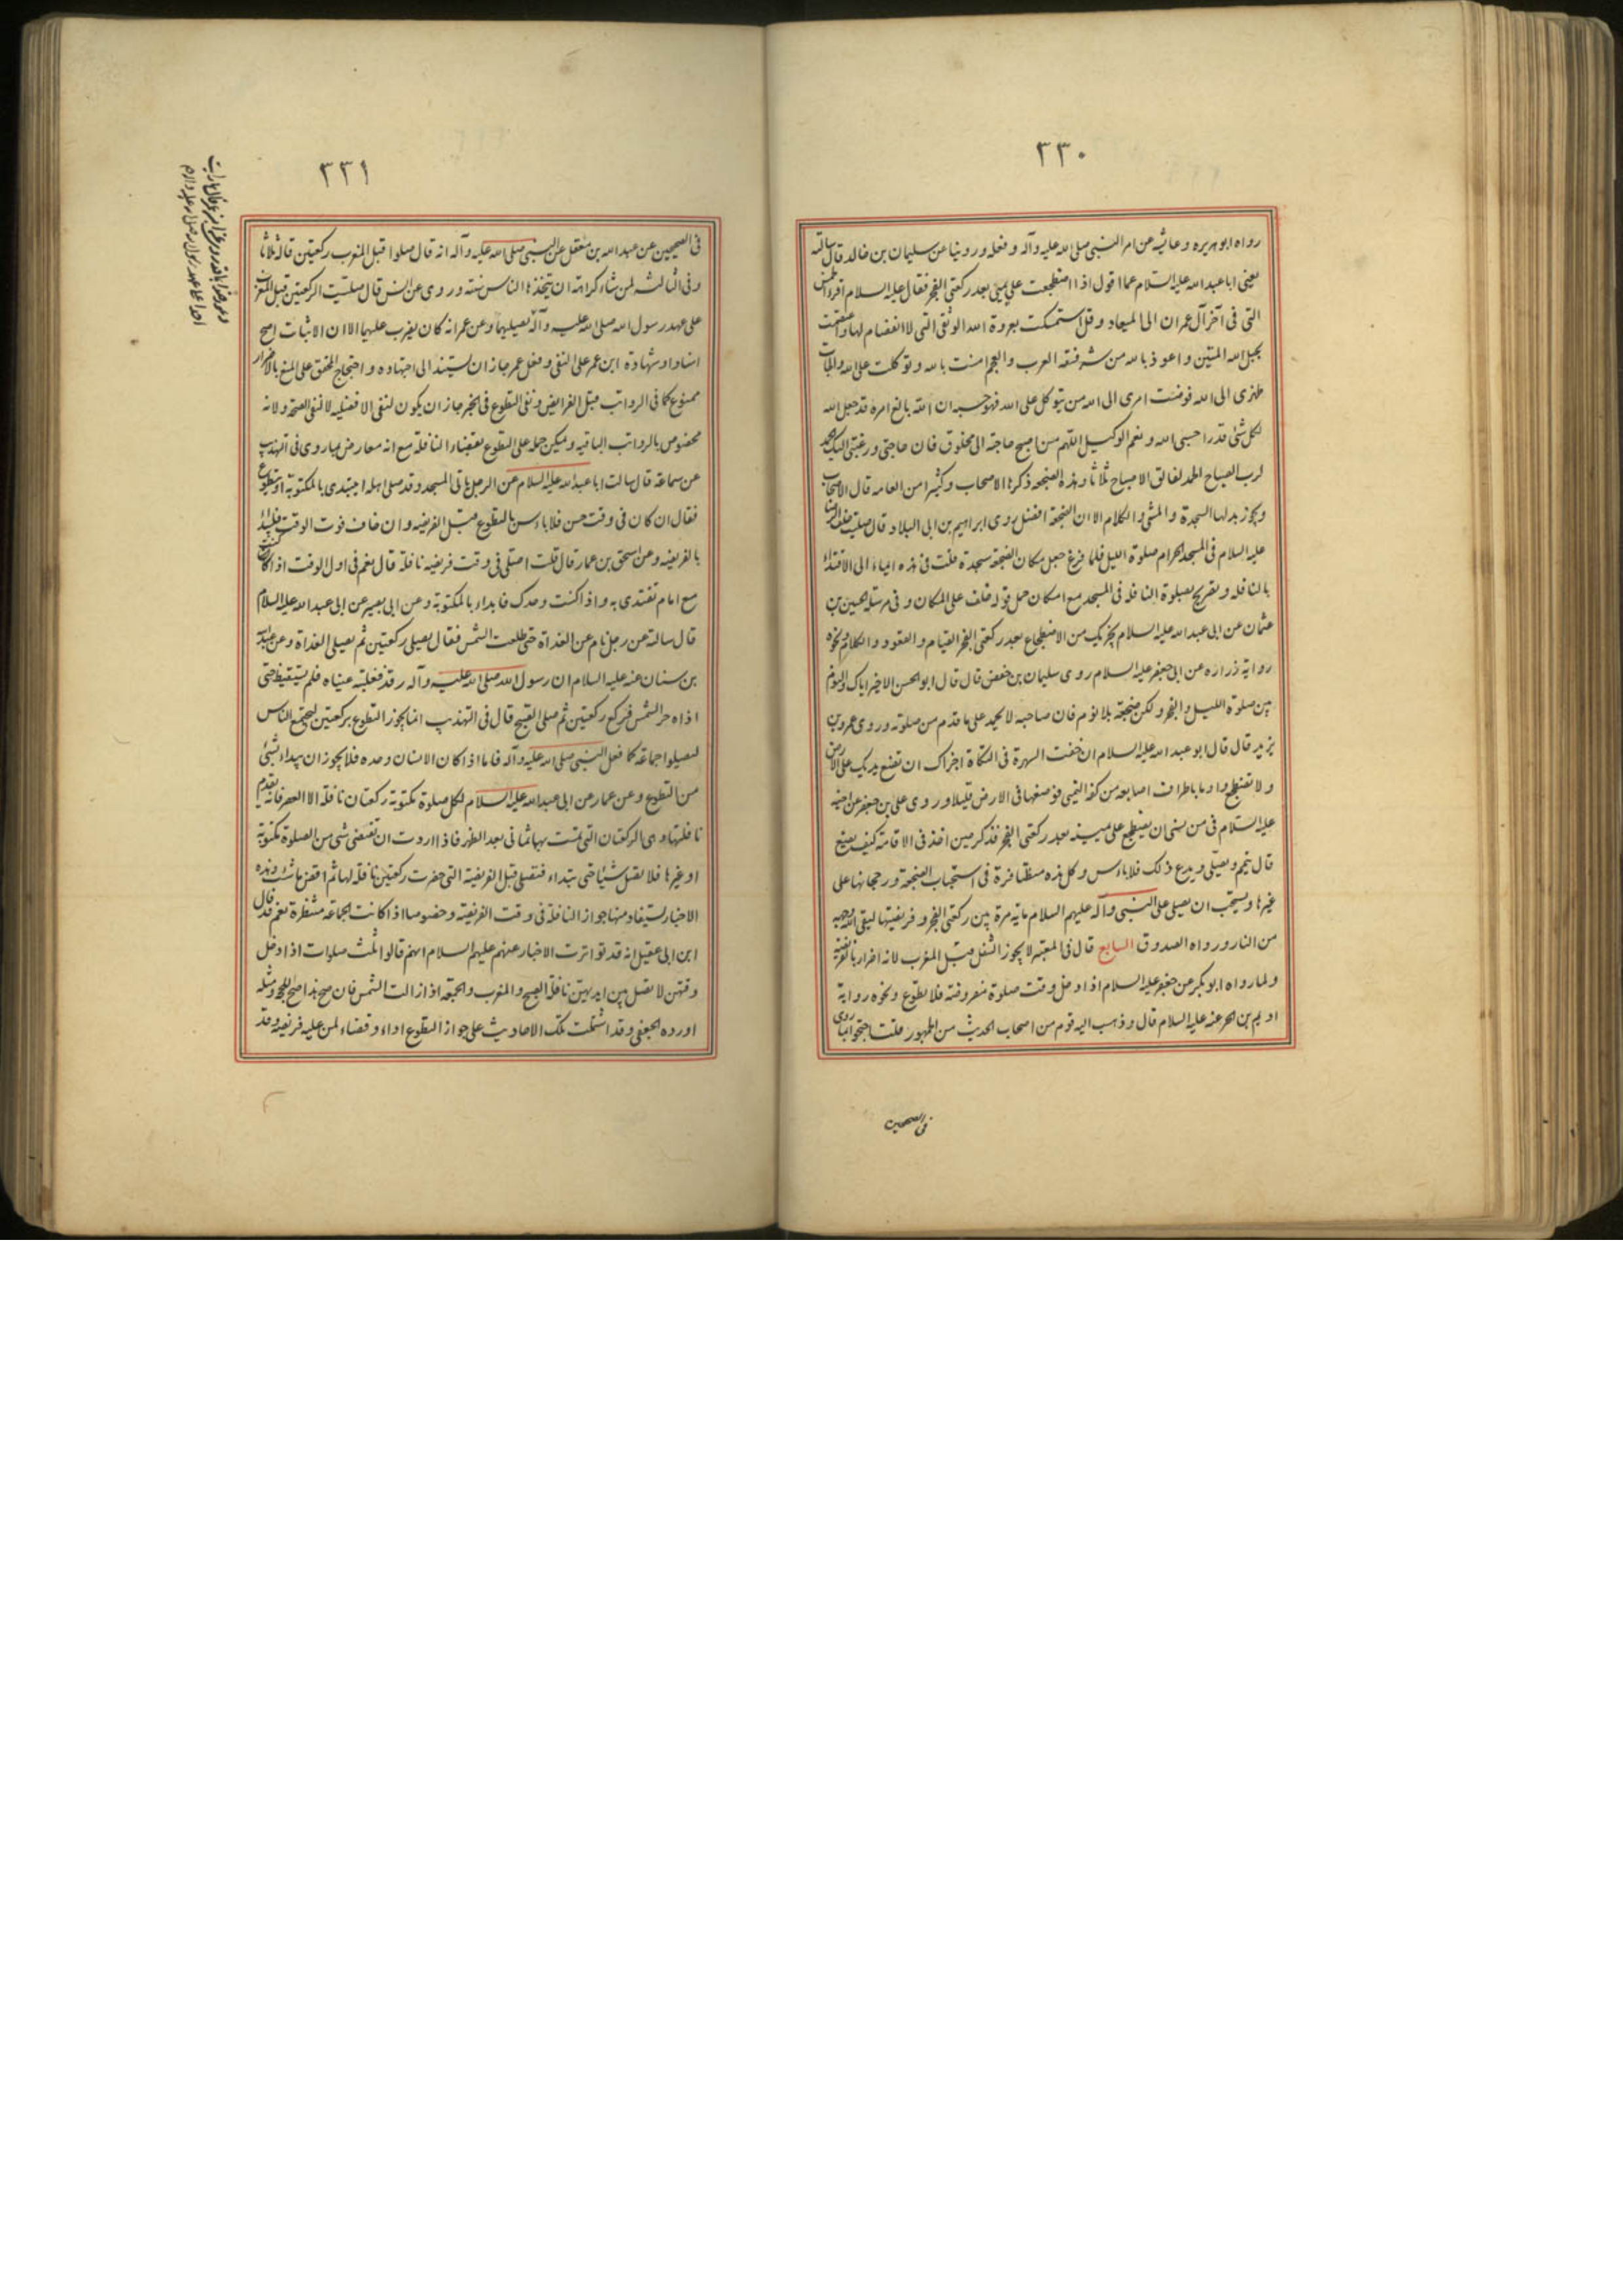 ٢٣٠
رواه ابو هريره و عائشه عن امر النبي صلى الله عليه وآله و فعله و روينا عن سليمان بن خالد قال سالته
يعنى ابا عبد الله عليه السلام عما اقول اذا اضطجعت على يمينى بعد ركعتى الفجر فقال عليه السلام اقرء الخمس
التى فى آخر آل عمران الى الميعاد و قل استمسكت بعروة الله الوثقى التى لا انفصام لها و اعتصمت
بحبل الله المتين و اعوذ بالله من شر فسقه العرب والعجم امنت بالله و توكلت على الله والجات
ظهرى الى الله فوضت امرى الى الله من يتوكل على الله فهو حسبه ان الله بالغ امره قد جعل الله
لكل شئ قدرا حسبى الله و نعم الوكيل اللهم من اصبح حاجته الى مخلوق فان حاجتى ورغبتى اليك الحمد
لرب الصباح الحمد لفالق الاصباح ثلاثا و هذه الضجعه ذكرها الاصحاب و كثير من العامه قال الاصحاب
و يجوز بدلها السجدة و المشى و الكلام الا ان الضجعة افضل روى ابراهيم بن ابى البلاد قال صليت خلف الرضا
عليه السلام فى المسجد الحرام صلوة الليل فلما فرغ جعل مكان الضجعه سجدة قلت فى هذه ايماء الى الاقتداء
بالنافله و تصريح بصلوة النافله فى المسجد مع امكان حمل قوله خلف على المكان و فى مرسله الحسين بن
عثمان عن ابى عبد الله عليه السلام يجزيك من الاضطجاع بعد ركعتى الفجر القيام و القعود و الكلام ونحوه
رواية زراره عن ابى جعفر عليه السلام روى سليمان بن حفص قال قال ابو الحسن الاخير اياك و النوم
بين صلوة الليل و الفجر و لكن ضجعه بلا نوم فان صاحبه لا يحمد على ما قدم من صلوته و روى عمر بن
يزيد قال قال ابو عبد الله عليه السلام ان خفت الشهرة فى التكاة اجزاك ان تضع يديك على الارض
و لا تضطجع و اوما باطراف اصابعه من كفه اليمنى فوضعها فى الارض قليلا و روى على بن جعفر عن اخيه
عليه السلام فى من نسى ان يضطجع على يمينه بعد ركعتى الفجر فذكر حين اخذ فى الاقامة كيف يصنع
قال يقيم و يصلى و يدع ذلك فلا باس و كل هذه متظافرة فى استحباب الضجعة و رجحانها على
غيرها و يستحب ان يصلى على النبى و آله عليهم السلام مايه مرة بين ركعتى الفجر و فريضتها ليقى الله وجهه
من النار و رواه الصدوق السابع قال فى المعتبر لا يجوز التنفل قبل المغرب لانه اضرار بالفريضة
ولما رواه ابو بكر عن جعفر عليه السلام اذا دخل وقت صلوة مفروضة فلا تطوع و نحوه رواية
اديم بن الحر عنه عليه السلام قال و ذهب اليه قوم من اصحاب الحديث من الجمهور قلت احتجوا بما روى
فى الصحيحين
٢٣١
فى الصحيحين عن عبد الله بن مغفل عن النبى صلى الله عليه وآله انه قال صلوا قبل المغرب ركعتين قاله ثلاثا
و فى الثالثه لمن شاء كراهة ان يتخذها الناس سنة و روى عن انس قال صليت الركعتين قبل المغرب
على عهد رسول الله صلى الله عليه وآله يصليهما و عن عمر انه كان يضرب عليهما الا ان الاثبات اصح
اسنادا و شهادة ابن عمر على النفى و فعل عمر جاز ان يستند الى اجتهاده و احتجاج المحقق على المنع بالاضرار
ممنوع كما فى الرواتب قبل الفرايض و نفى التطوع فى الخبر جاز ان يكون لنفى الافضليه لا لنفى الصحه و لانه
مخصوص بالرواتب الباقيه و يمكن حمله على التطوع بقضاء النافلة مع انه معارض بما روى فى التهذيب
عن سماعة قال سالت ابا عبد الله عليه السلام عن الرجل ياتى المسجد و قد صلى اهله ايبتدى بالمكتوبة او يتطوع
فقال ان كان فى وقت حسن فلا باس بالتطوع قبل الفريضه و ان خاف فوت الوقت فليبدا
بالفريضه و عن اسحق بن عمار قال قلت اصلى فى وقت فريضه نافلة قال نعم فى اول الوقت اذا كنت
مع امام تقتدى به و اذا كنت وحدك فابدا بالمكتوبة و عن ابى بصير عن ابى عبد الله عليه السلام
قال سالته عن رجل نام عن الغداة حتى طلعت الشمس فقال يصلى ركعتين ثم يصلى الغداة و عن عبد الله
بن سنان عنه عليه السلام ان رسول الله صلى الله عليه وآله رقد فغلبته عيناه فلم يستيقظ حتى
اذاه حر الشمس فركع ركعتين ثم صلى الصبح قال فى التهذيب انما يجوز التطوع بركعتين ليجتمع الناس
ليصلوا جماعة كما فعل النبى صلى الله عليه وآله فاما اذا كان الانسان وحده فلا يجوز ان يبداء بشئ
من التطوع و عن عمار عن ابى عبد الله عليه السلام لكل صلوة مكتوبة ركعتان نافلة الا العصر فانه يقدم
نافلتها و هى الركعتان التى تمت بهما ثمانى بعد الظهر فاذا اردت ان تقضى شئ من الصلوة مكتوبة
او غيرها فلا تصل شيئا حتى تبتداء فتصلى قبل الفريضة التى حضرت ركعتين نافلة لها ثم اقض ما شئت وهذه
الاخبار يستفاد منها جواز النافلة فى وقت الفريضه و خصوصا اذا كانت الجماعة منتظرة نعم قد قال
ابن ابى عقيل انه قد تواترت الاخبار عنهم عليهم السلام انهم قالوا ثلث صلوات اذا دخل
وقتهن لا تصل بين ايديهن نافلة الصبح و المغرب و الجمعة اذا زالت الشمس فان صح هذا صلح للحجة و مثله
اورده الجعفى و قد اشتملت تلك الاحاديث على جواز التطوع اداء و قضاء لمن عليه فريضه و قد
احدا على عهد رسول الله صلى الله عليه وآله